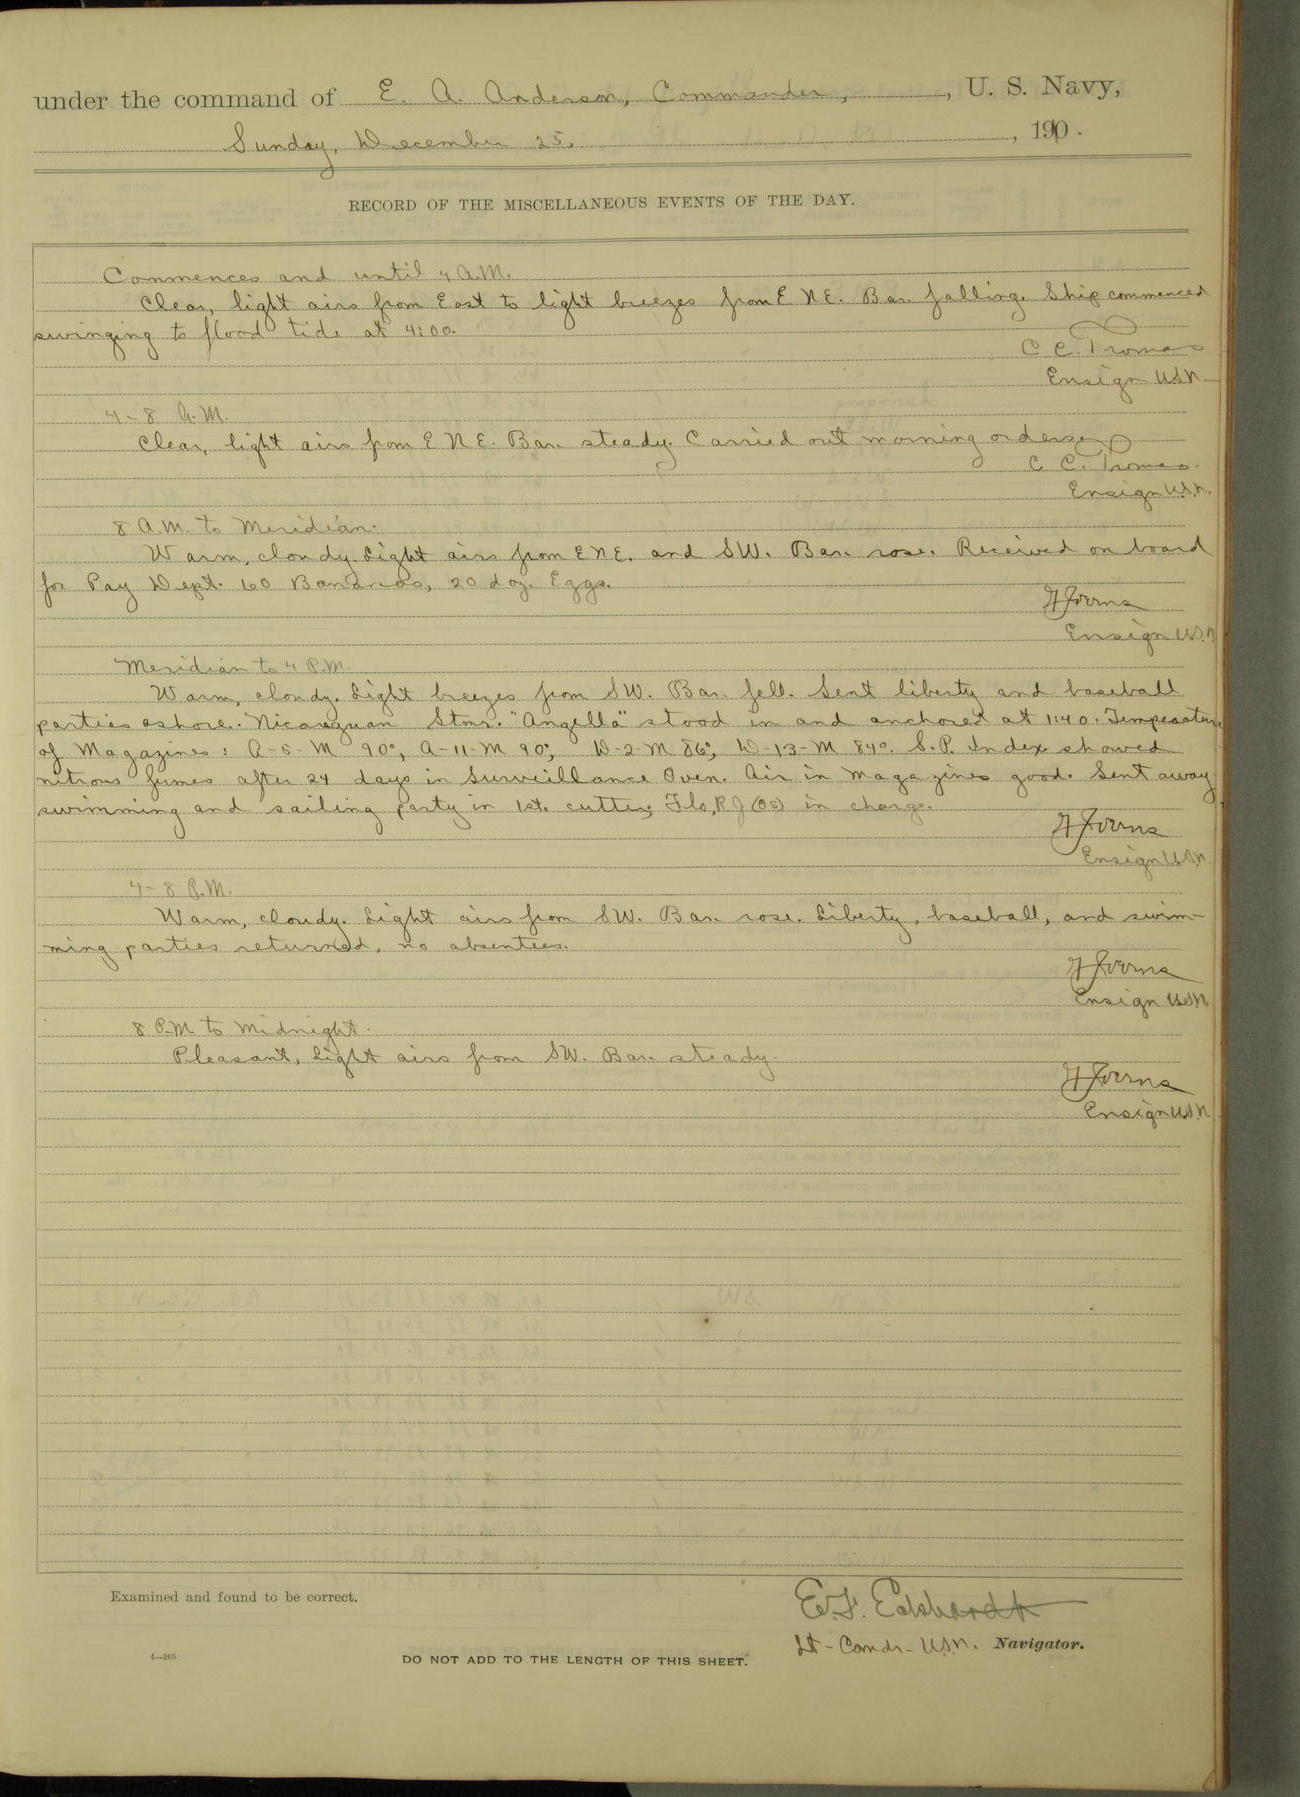 under the command of E. A. Anderson, Commander, , U. S. Navy,
Sunday, December 25, , 1910.
RECORD OF THE MISCELLANEOUS EVENTS OF THE DAY.
Commences and until 4 A.M.
Clear, light airs from East to light breezes from E NE. Bar. falling. Ship commenced
swinging to flood tide at 4:00.
C C. Thomas
Ensign U.S.N.
4-8 A.M.
Clear, light airs from E N E. Bar. steady. Carried out morning orders.
C C. Thomas.
Ensign U.S.N.
8 A.M. to Meridian.
Warm, cloudy. Light airs from E N E. and SW. Bar. rose. Received on board
for Pay Dept. 60 Bananas, 20 doz. Eggs.
Ensign U.S.N
Meridian to 4 P.M.
Warm, cloudy. Light breezes from SW. Bar. fell. Sent liberty and baseball
parties ashore. Nicaraguan Stmr. "Angella" stood in and anchored at 1:40. Temperature
of Magazines: A-5-M 90°, A-11-M 90°, D-2-M 86°, D-13-M 84°. S.P. Index showed
nitrous fumes after 24 days in Surveillance Oven. Air in Magazines good. Sent away
swimming and sailing party in 1st. cutter, Flo, R J (OS) in charge.
Ensign U.S.N.
4-8 P.M.
Warm, cloudy. Light airs from SW. Bar. rose. Liberty, baseball, and swim-
ming parties returned, no absentees.
Ensign U.S.N
8 P.M to Midnight.
Pleasant, Light airs from SW. Bar. steady.
Ensign U.S.N
Examined and found to be correct.
E. F. Eckhardt
Lt-Comdr-U.S.N. Navigator.
4—265
DO NOT ADD TO THE LENGTH OF THIS SHEET.